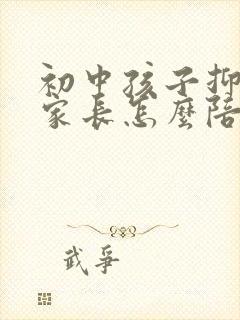 初中孩子抑
家长怎麼陪
武爭